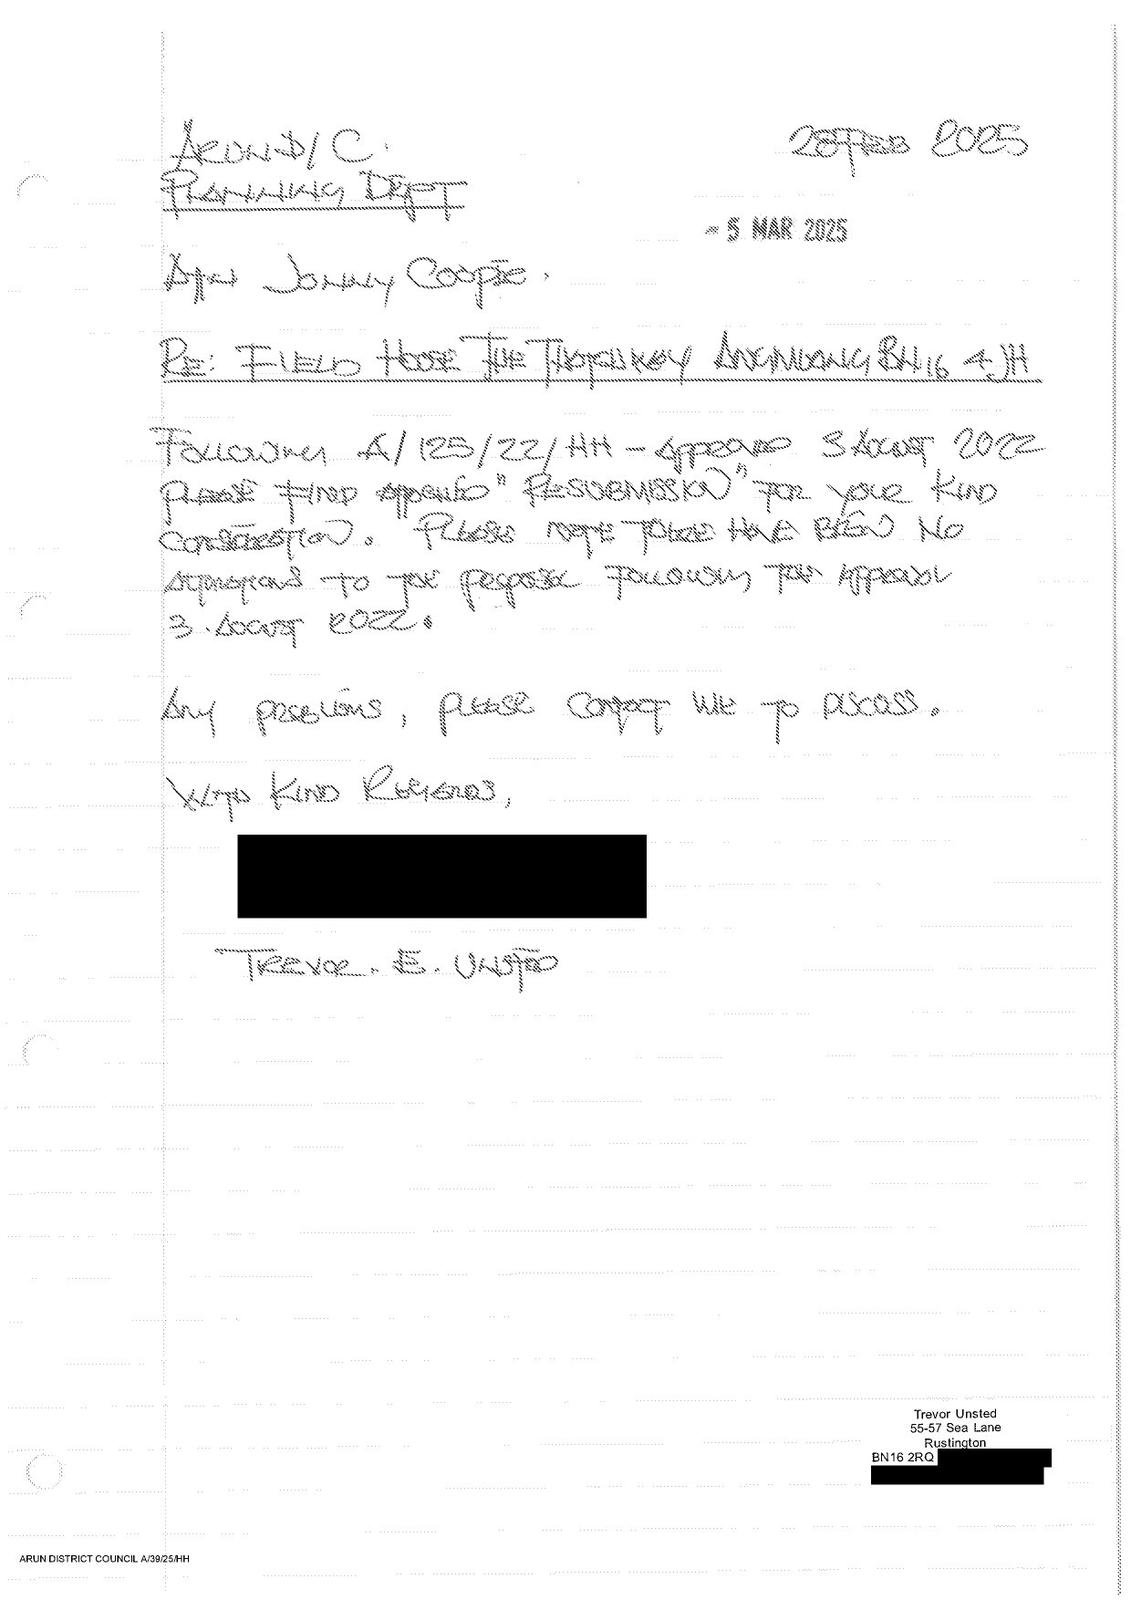 ARUN D/C.
28 FEB 2025
PLANNING DEPT
- 5 MAR 2025
ATTN JONNY COOPER.
RE: FIELD HOUSE THE THATCHWAY ANGMERING BN16 4JH
FOLLOWING A/125/22/HH - APPROVED 3 AUGUST 2022
PLEASE FIND APPENDED "RESUBMISSION" FOR YOUR KIND
CONSIDERATION. PLEASE NOTE THERE HAVE BEEN NO
ALTERATIONS TO THE PROPOSAL FOLLOWING THE APPROVAL
3 AUGUST 2022.
ANY PROBLEMS, PLEASE CONTACT ME TO DISCUSS.
WITH KIND REGARDS,
TREVOR. E. UNSTED
Trevor Unsted
55-57 Sea Lane
Rustington
BN16 2RQ
ARUN DISTRICT COUNCIL A/39/25/HH